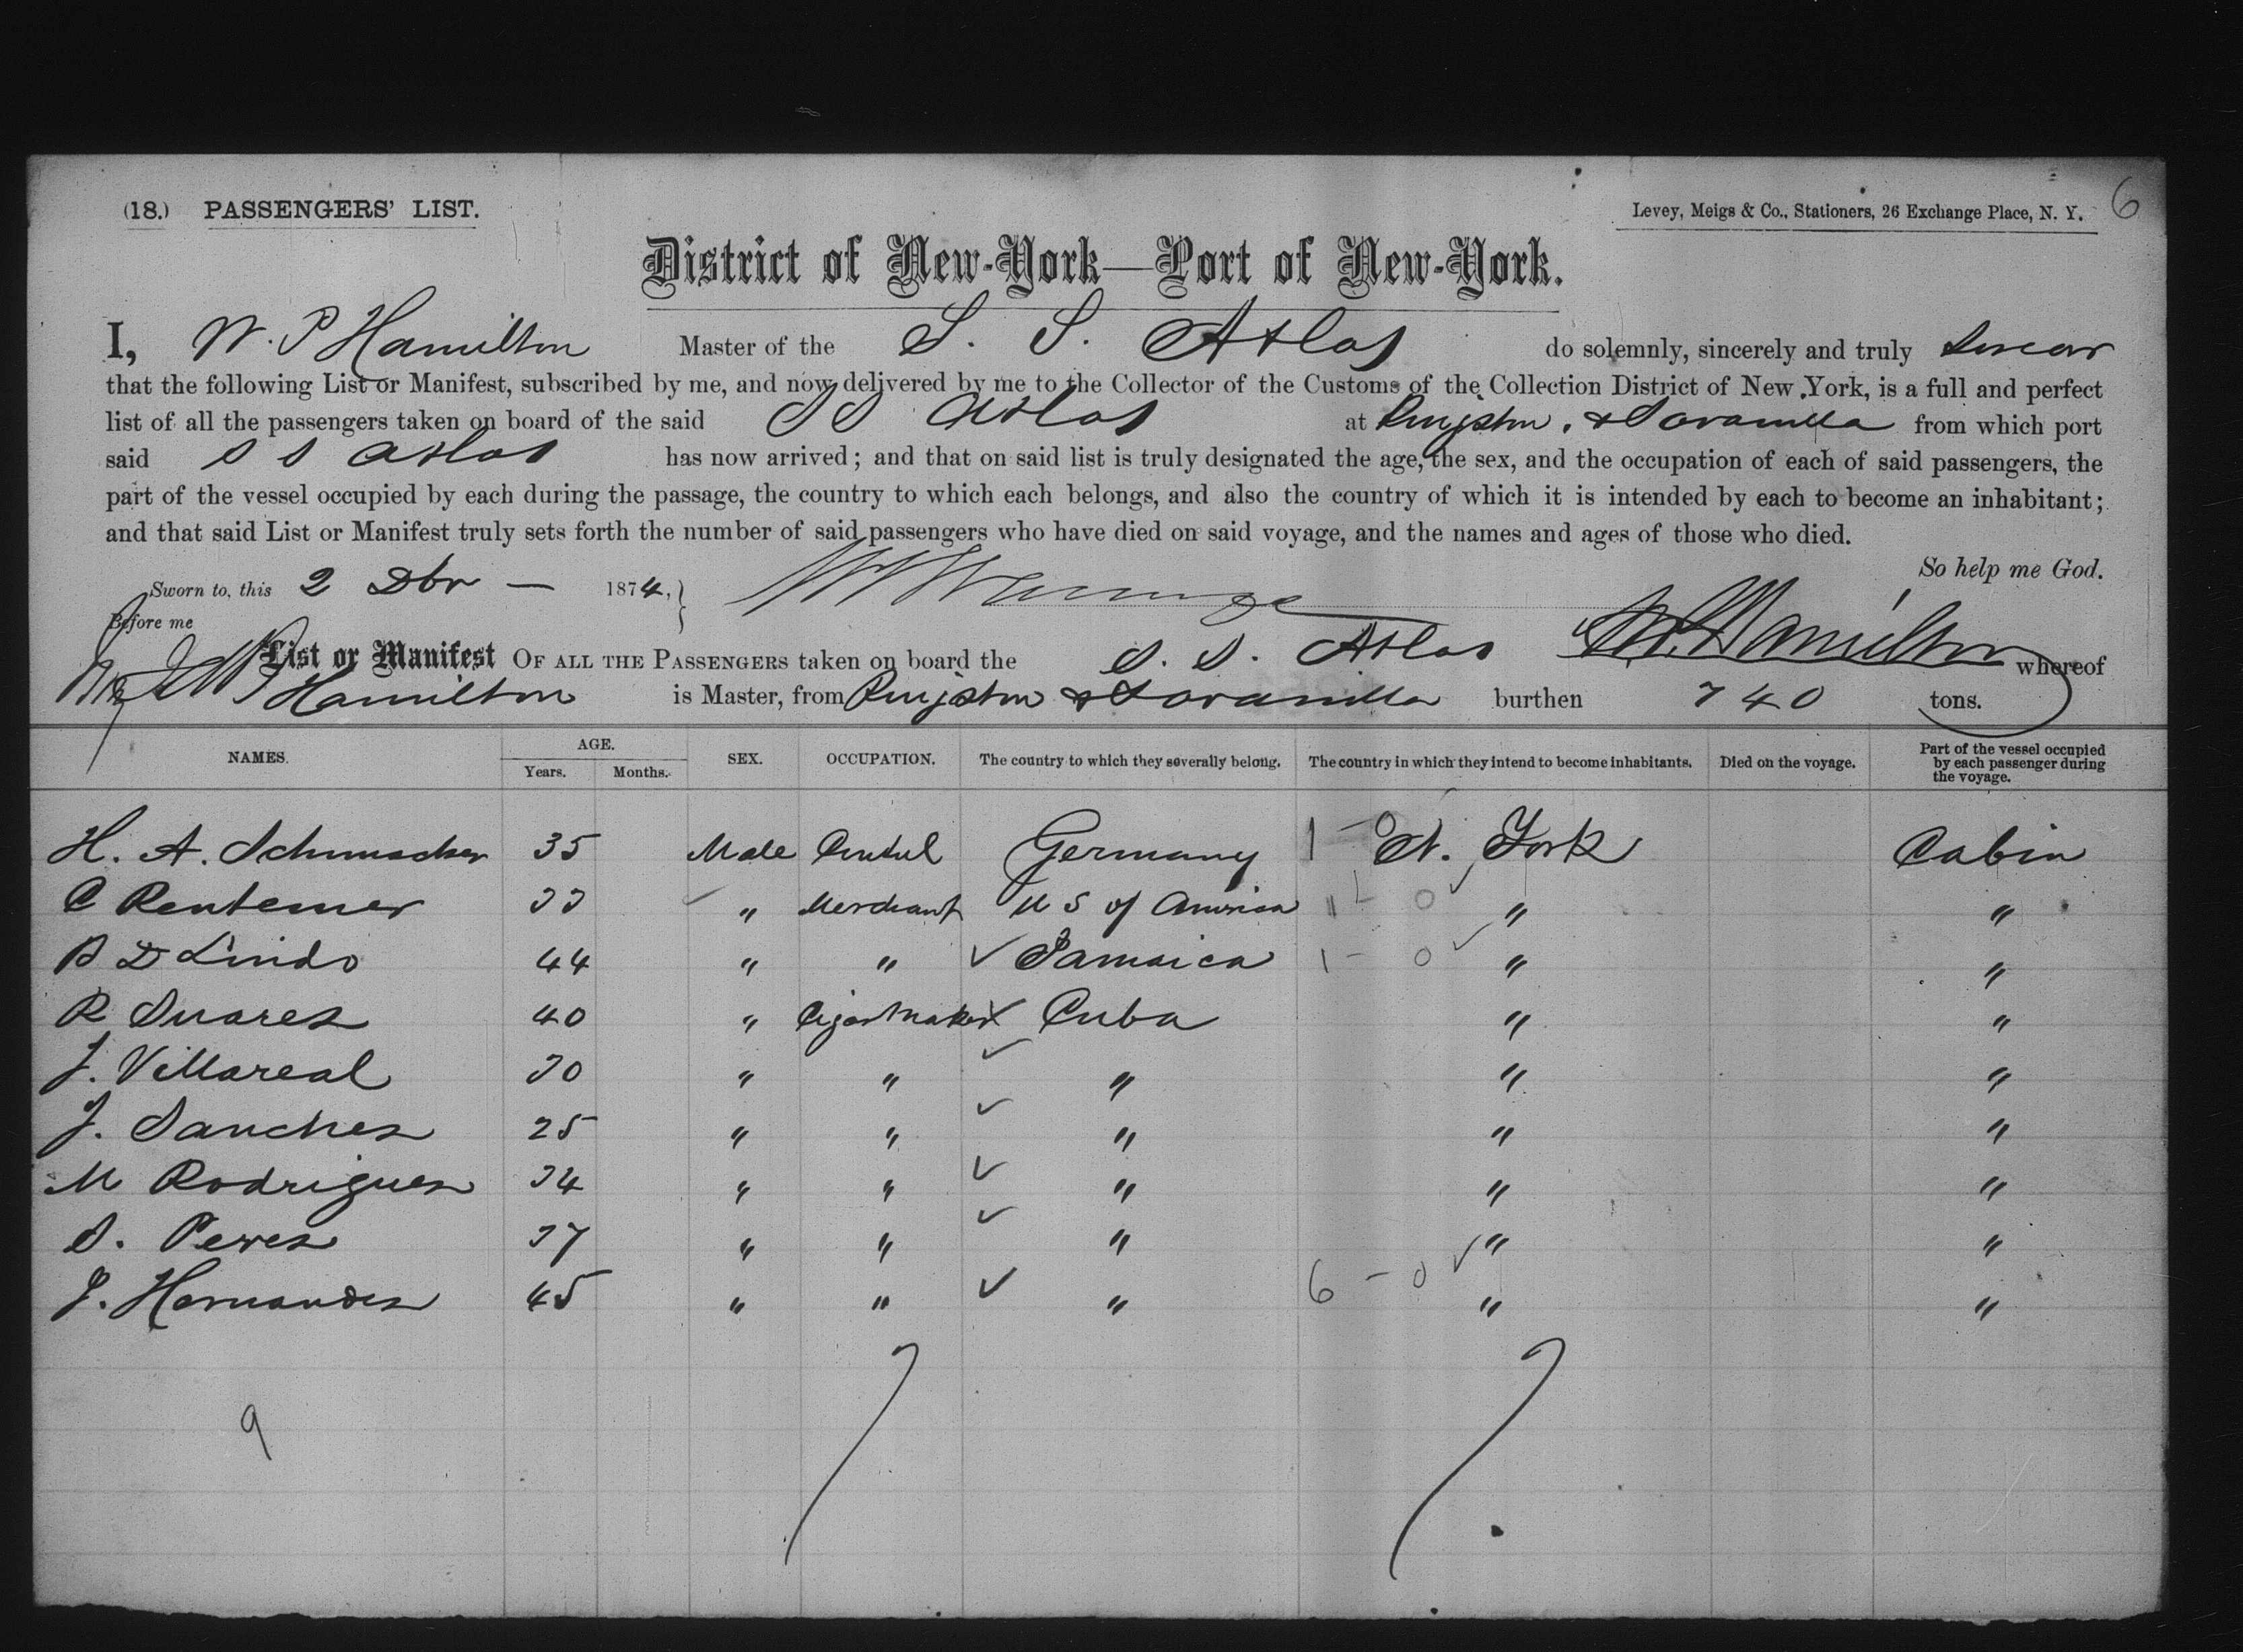 (18.) PASSENGERS' LIST.
Levey, Meigs & Co., Stationers, 26 Exchange Place, N. Y. 6
District of New-York—Port of New-York.
I, W. P Hamilton Master of the S. S. Atlas do solemnly, sincerely and truly swear
that the following List or Manifest, subscribed by me, and now delivered by me to the Collector of the Customs of the Collection District of New York, is a full and perfect
list of all the passengers taken on board of the said S S Atlas at Kingston, & Savanilla from which port
said S S Atlas has now arrived; and that on said list is truly designated the age, the sex, and the occupation of each of said passengers, the
part of the vessel occupied by each during the passage, the country to which each belongs, and also the country of which it is intended by each to become an inhabitant;
and that said List or Manifest truly sets forth the number of said passengers who have died on said voyage, and the names and ages of those who died.
So help me God.
Sworn to, this 2 Dbr — 1874,}
Before me W. Hamilton
List or Manifest OF ALL THE PASSENGERS taken on board the S. S. Atlas whereof
W P Hamilton is Master, from Kingston & Savanilla burthen 740 tons.
NAMES. AGE. Years. Months. SEX. OCCUPATION. The country to which they severally belong. The country in which they intend to become inhabitants. Died on the voyage. Part of the vessel occupied by each passenger during the voyage.
H. A. Schumacher 35 Male Germany 1 - 0 N. York Cabin
C Rentemer 33 " Merchant U S of America 1 - 0 " "
B D Lindo 44 " " ✓ Jamaica 1 - 0 ✓ " "
R Suares 40 " Cigar Maker ✓ Cuba " "
J. Villareal 30 " " ✓ " " "
J. Sanches 25 " " ✓ " " "
M Rodrigues 34 " " ✓ " " "
S. Peres 37 " " ✓ " " "
J. Hernandes 45 " " ✓ " 6 - 0 ✓ " "
9